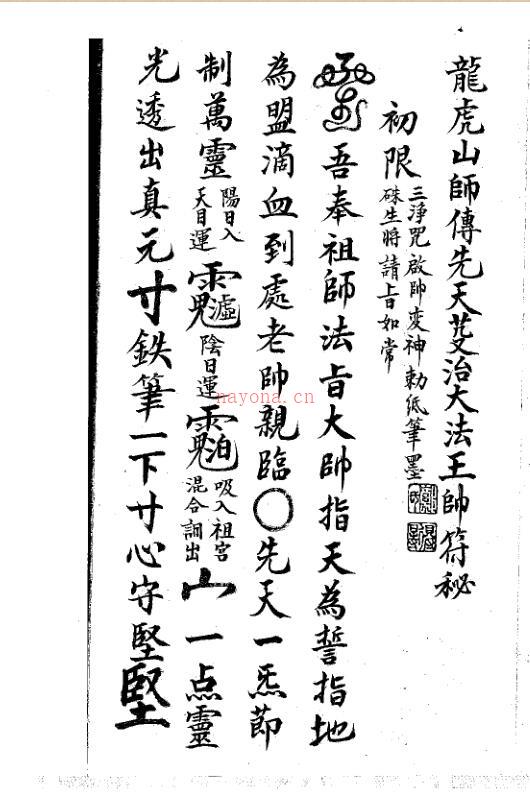 龍虎山師傳先天芟治大法王帥符秘
初限
三淨咒啟帥变神勅紙筆墨
硃生將請旨如常
吾奉祖師法旨大帥指天為誓指地
為盟滴血到處老帥親臨〇先天一炁節
制萬靈
陽日入
天目運
陰日運
吸入祖宮
混合調出
一点靈
光透出真元寸鉄筆一下寸心守堅堅
nayona.cn